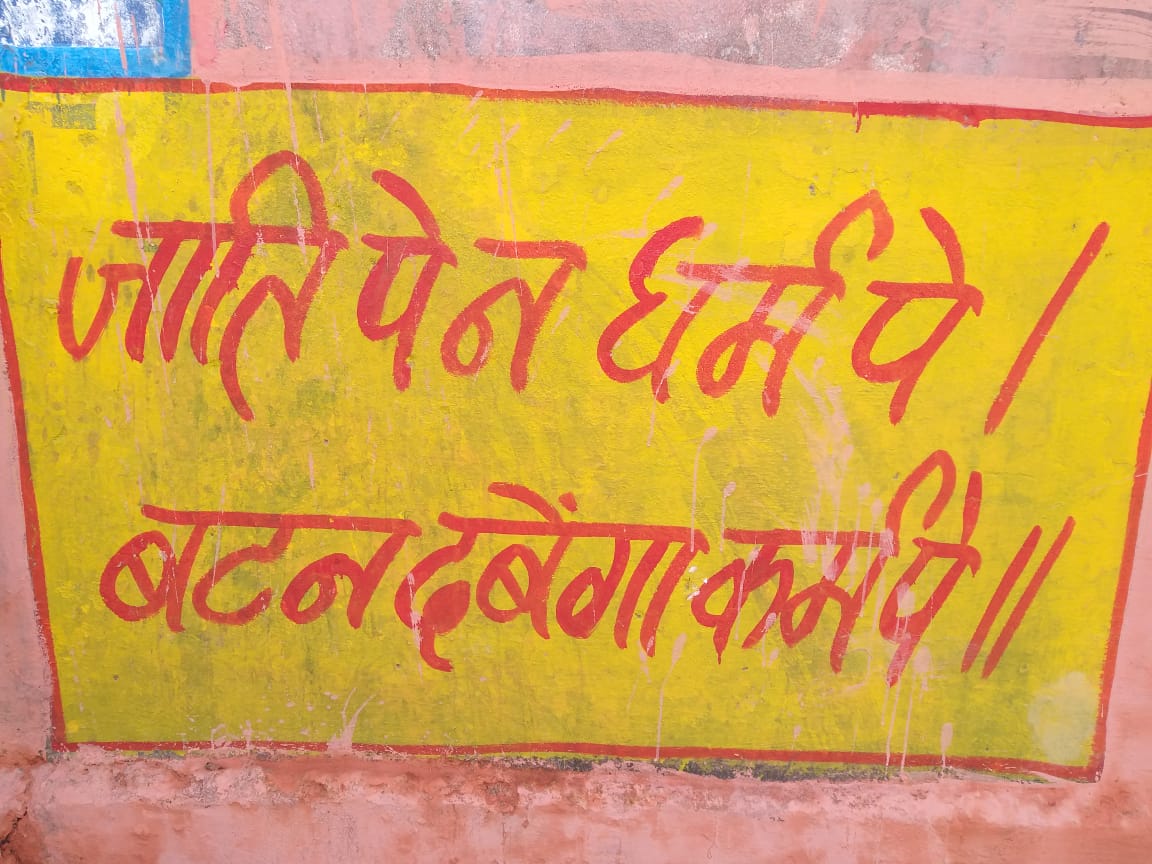 जाति पे न धर्म पे ।
बटन दबेंगा कर्म पे ॥